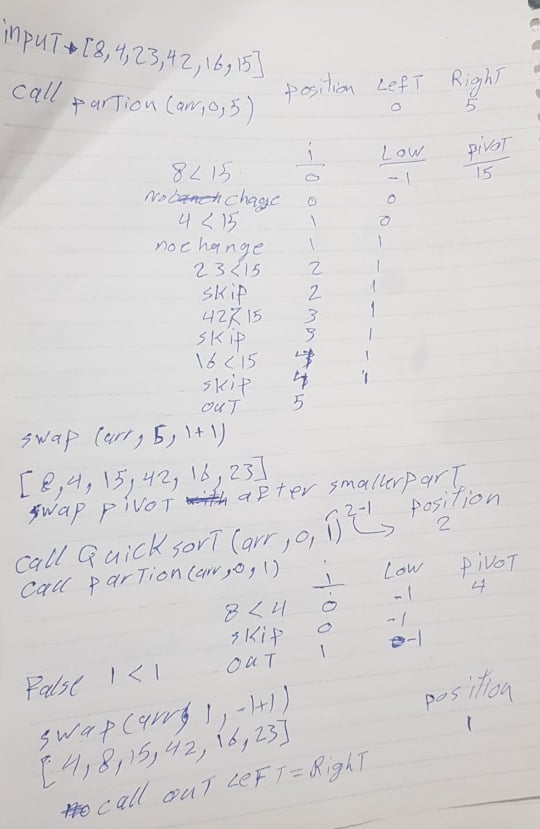 inpuT → [8,4,23,42,16,15]
call parTion (arr,0,5) position LefT Right
0 5
i Low pivoT
8<15 0 -1 15
no chage 0 0
4<15 1 0
no change 1 1
23<15 2 1
skip 2 1
42<15 3 1
skip 3 1
16<15 4 1
skip 4 1
ouT 5
swap (arr, 5, 1+1)
[8,4,15,42,16,23]
swap pivoT after smallerparT
call QuicksorT (arr,0,1) 2-1 → position
2
call parTion(arr,0,1) i Low pivoT
8<4 0 -1 4
skip 0 -1
False 1<1 ouT 1 -1
swap(arr, 1, -1+1) position
[4,8,15,42,16,23] 1
call ouT LeFT=RighT